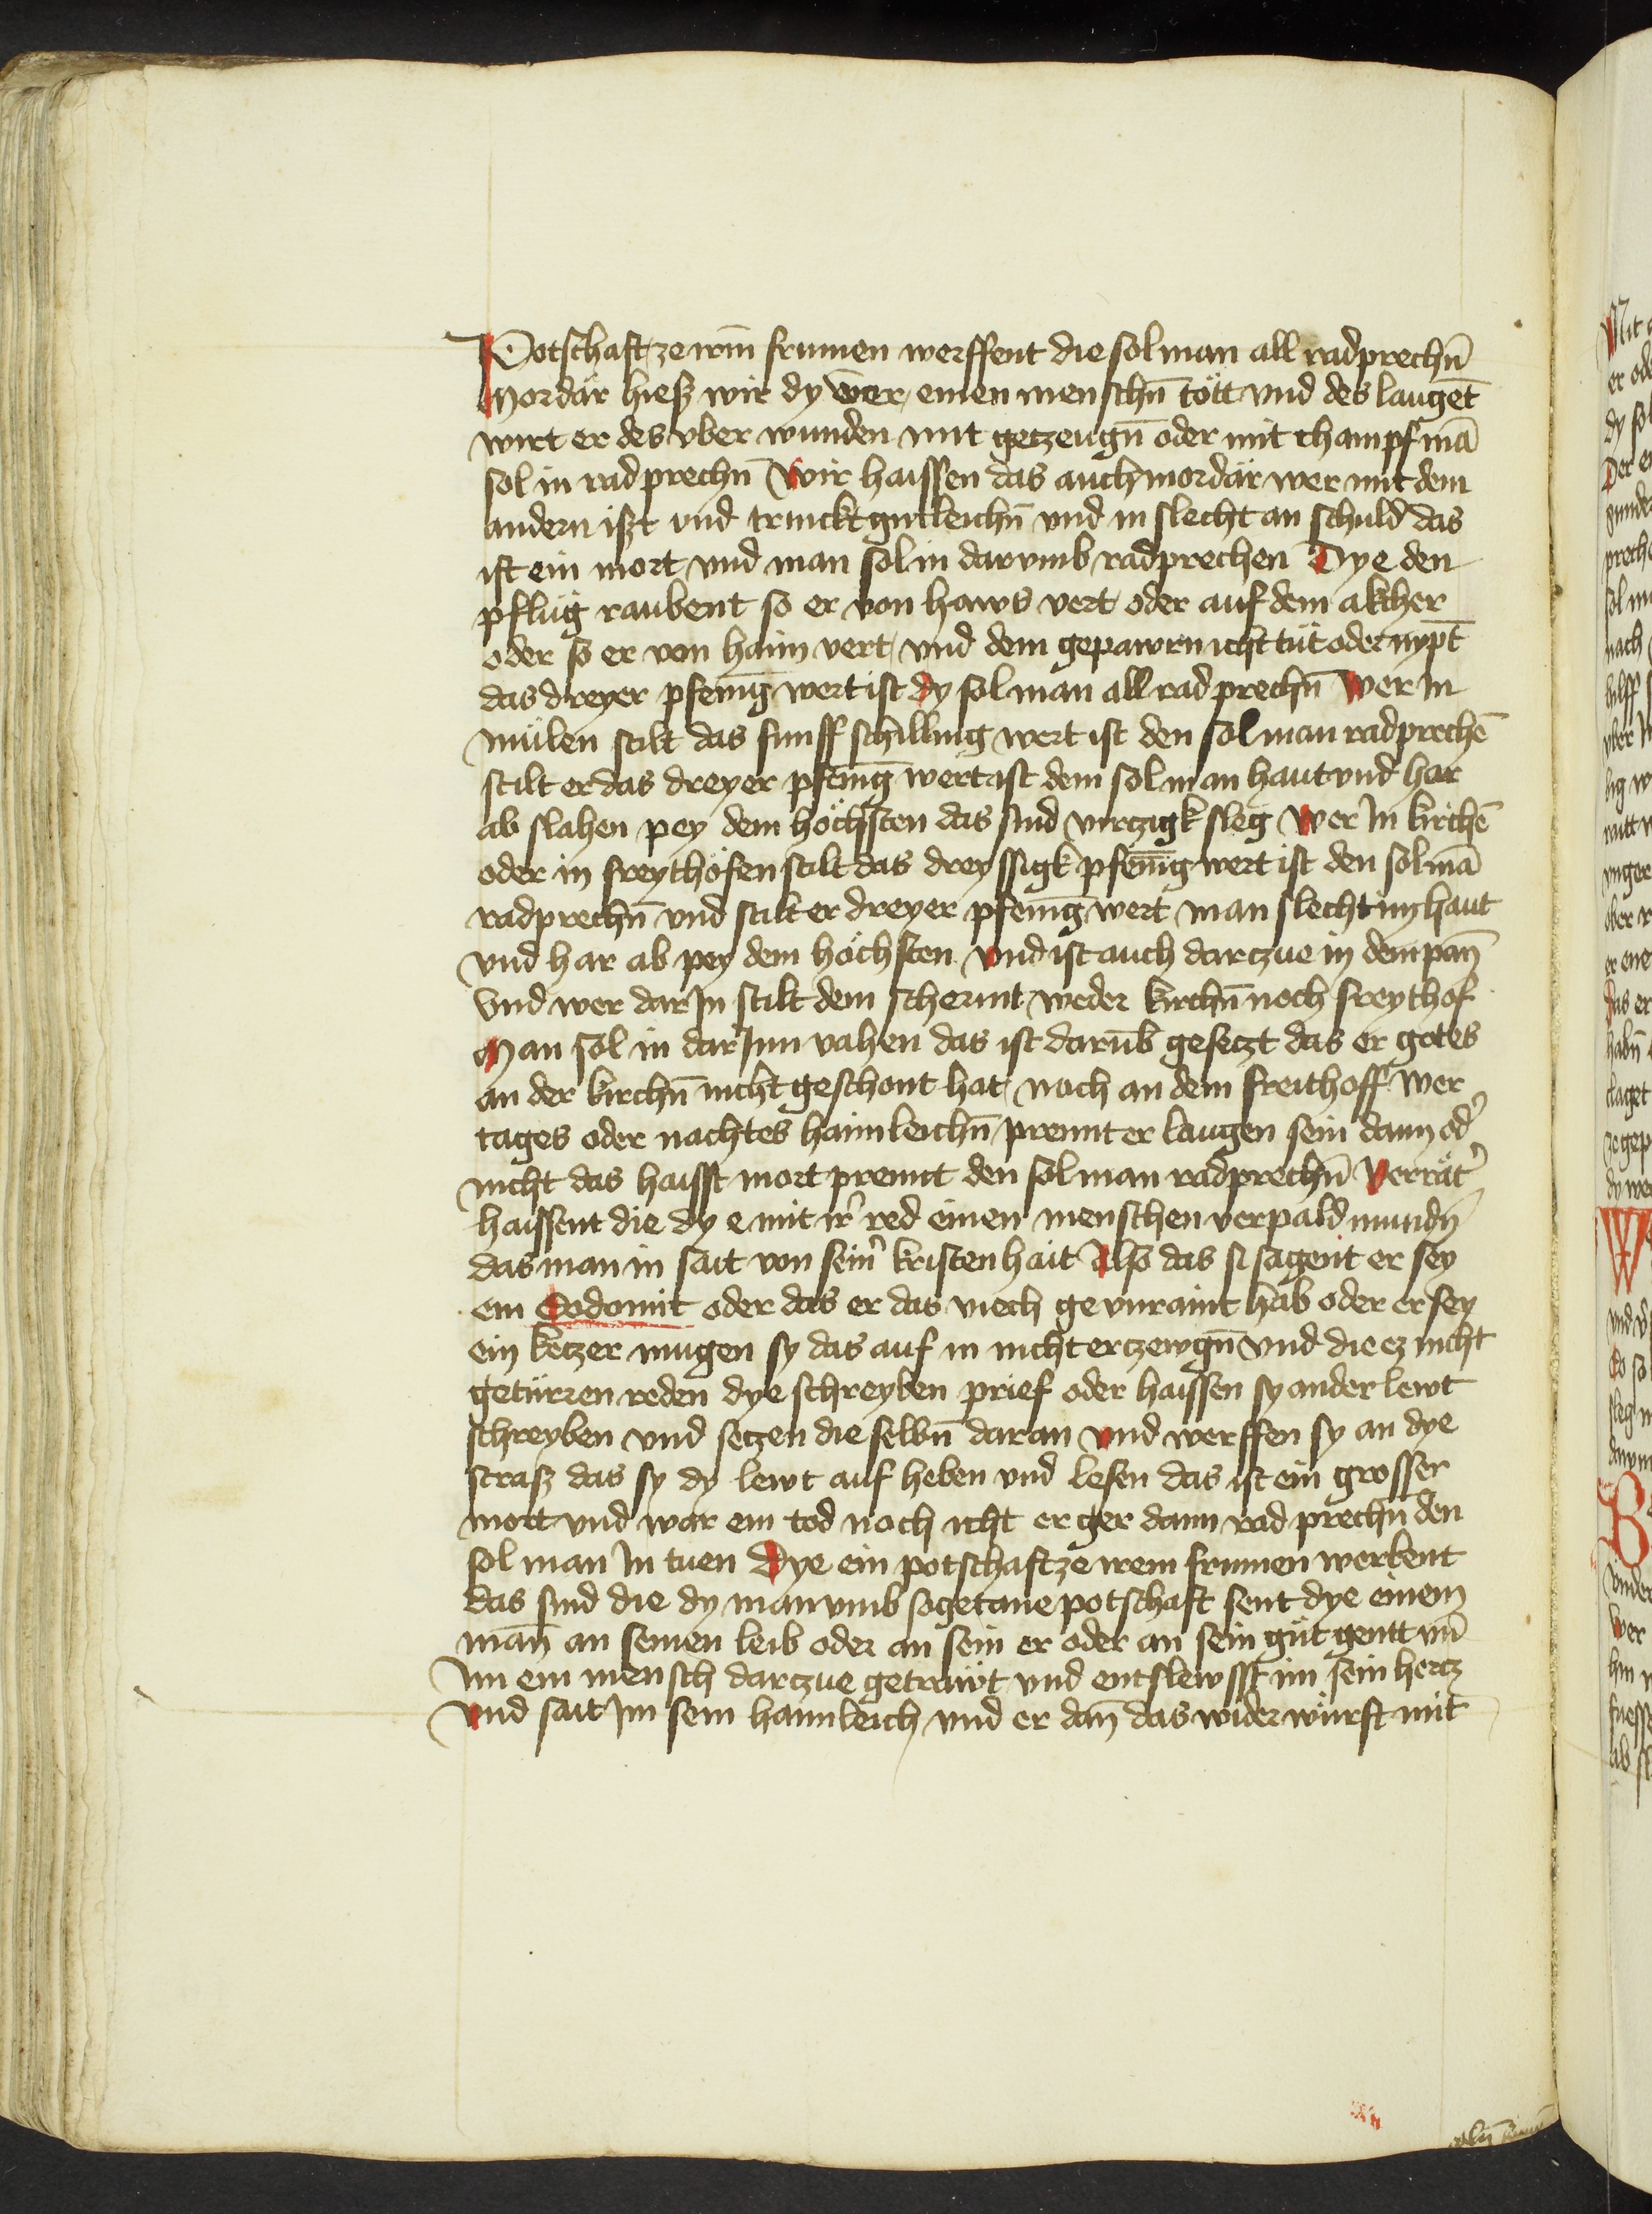 Potschaft ze irm̄ frumen werffent die sol man all radprechn̄
Mordär hiess wir dy wer einen menschn̄ tött vnd des laugēt
wirt er des vber wunden mit getzeugn̄ oder mit champf mā
sol in radprechn̄ Wir haissen das auch mordär wer mit dem
andern iszt vnd trinckt gutleichn̄ vnd in slecht an schuld das
ist ein mort vnd man sol in darvmb radprechen Dye den
pflug raubent so er von haws vert oder auf dem akcher
oder so er von haim vert vnd dem gepawrn icht tut oder nypt̄
das dreyer pfenīg wert ist dy sol man all radprechn̄ Wer In
mülen stilt das funff schilling wert ist den sol man radprechē
stilt er das dreyer pfenīg wert ist dem sol man haut vnd har
ab slahen pey dem höchsten das sind virczigk sleg Wer In kirchē
oder in freythöfen stilt das dreyssigk pfenīg wert ist den sol mā
radprechn̄ vnd stilt er dreyer pfenīg wert man slecht im haut
vnd har ab pey dem höchsten Vnd ist auch darczue in dem pan̄
Vnd wer dar In stilt dem schermt weder kirchn̄ noch freythof
Man sol in dar Inn vahen das ist darūb gesetzt das er gotes
an der kirchn̄ nicht geschont hat noch an dem freithoff Wer
tages oder nachtes haimleichn̄ prennt er laugen sein dann od̓
nicht das haisst mort prennt den sol man radprechn̄ Verrät̓
haissent die dy e mit ir̓ red einen menschen verpaldmundn̄
das man in sait von sein̓ kristenhait Also das si sagent er sey
ein Sodomit oder das er das viech gevnraint hab oder er sey
ein ketzer mugen sy das auf in nicht erczewgn̄ Vnd die ez nicht
getürren reden dye schreyben prief oder haissen sy ander lewt
schreyben vnd setzen die selbn̄ daran Vnd werffen sy an dye
strasz das sy dy lewt auf heben vnd lesen das ist ein grosser
mort vnd wär ein tod noch icht erger dann radprechn̄ den
sol man In tuen Dye ein potschaft ze irem frumen werbent
das sind die dy man vmb sogetane potschaft sent dye einem
man̄ an seinen leib oder an sein er oder an sein gut gentt vn̄
Im ein mensch darczue getrawt vnd entslewsst im sein hertz
Vnd sait Im sein haimleich vnd er dan̄ das wider würft mit